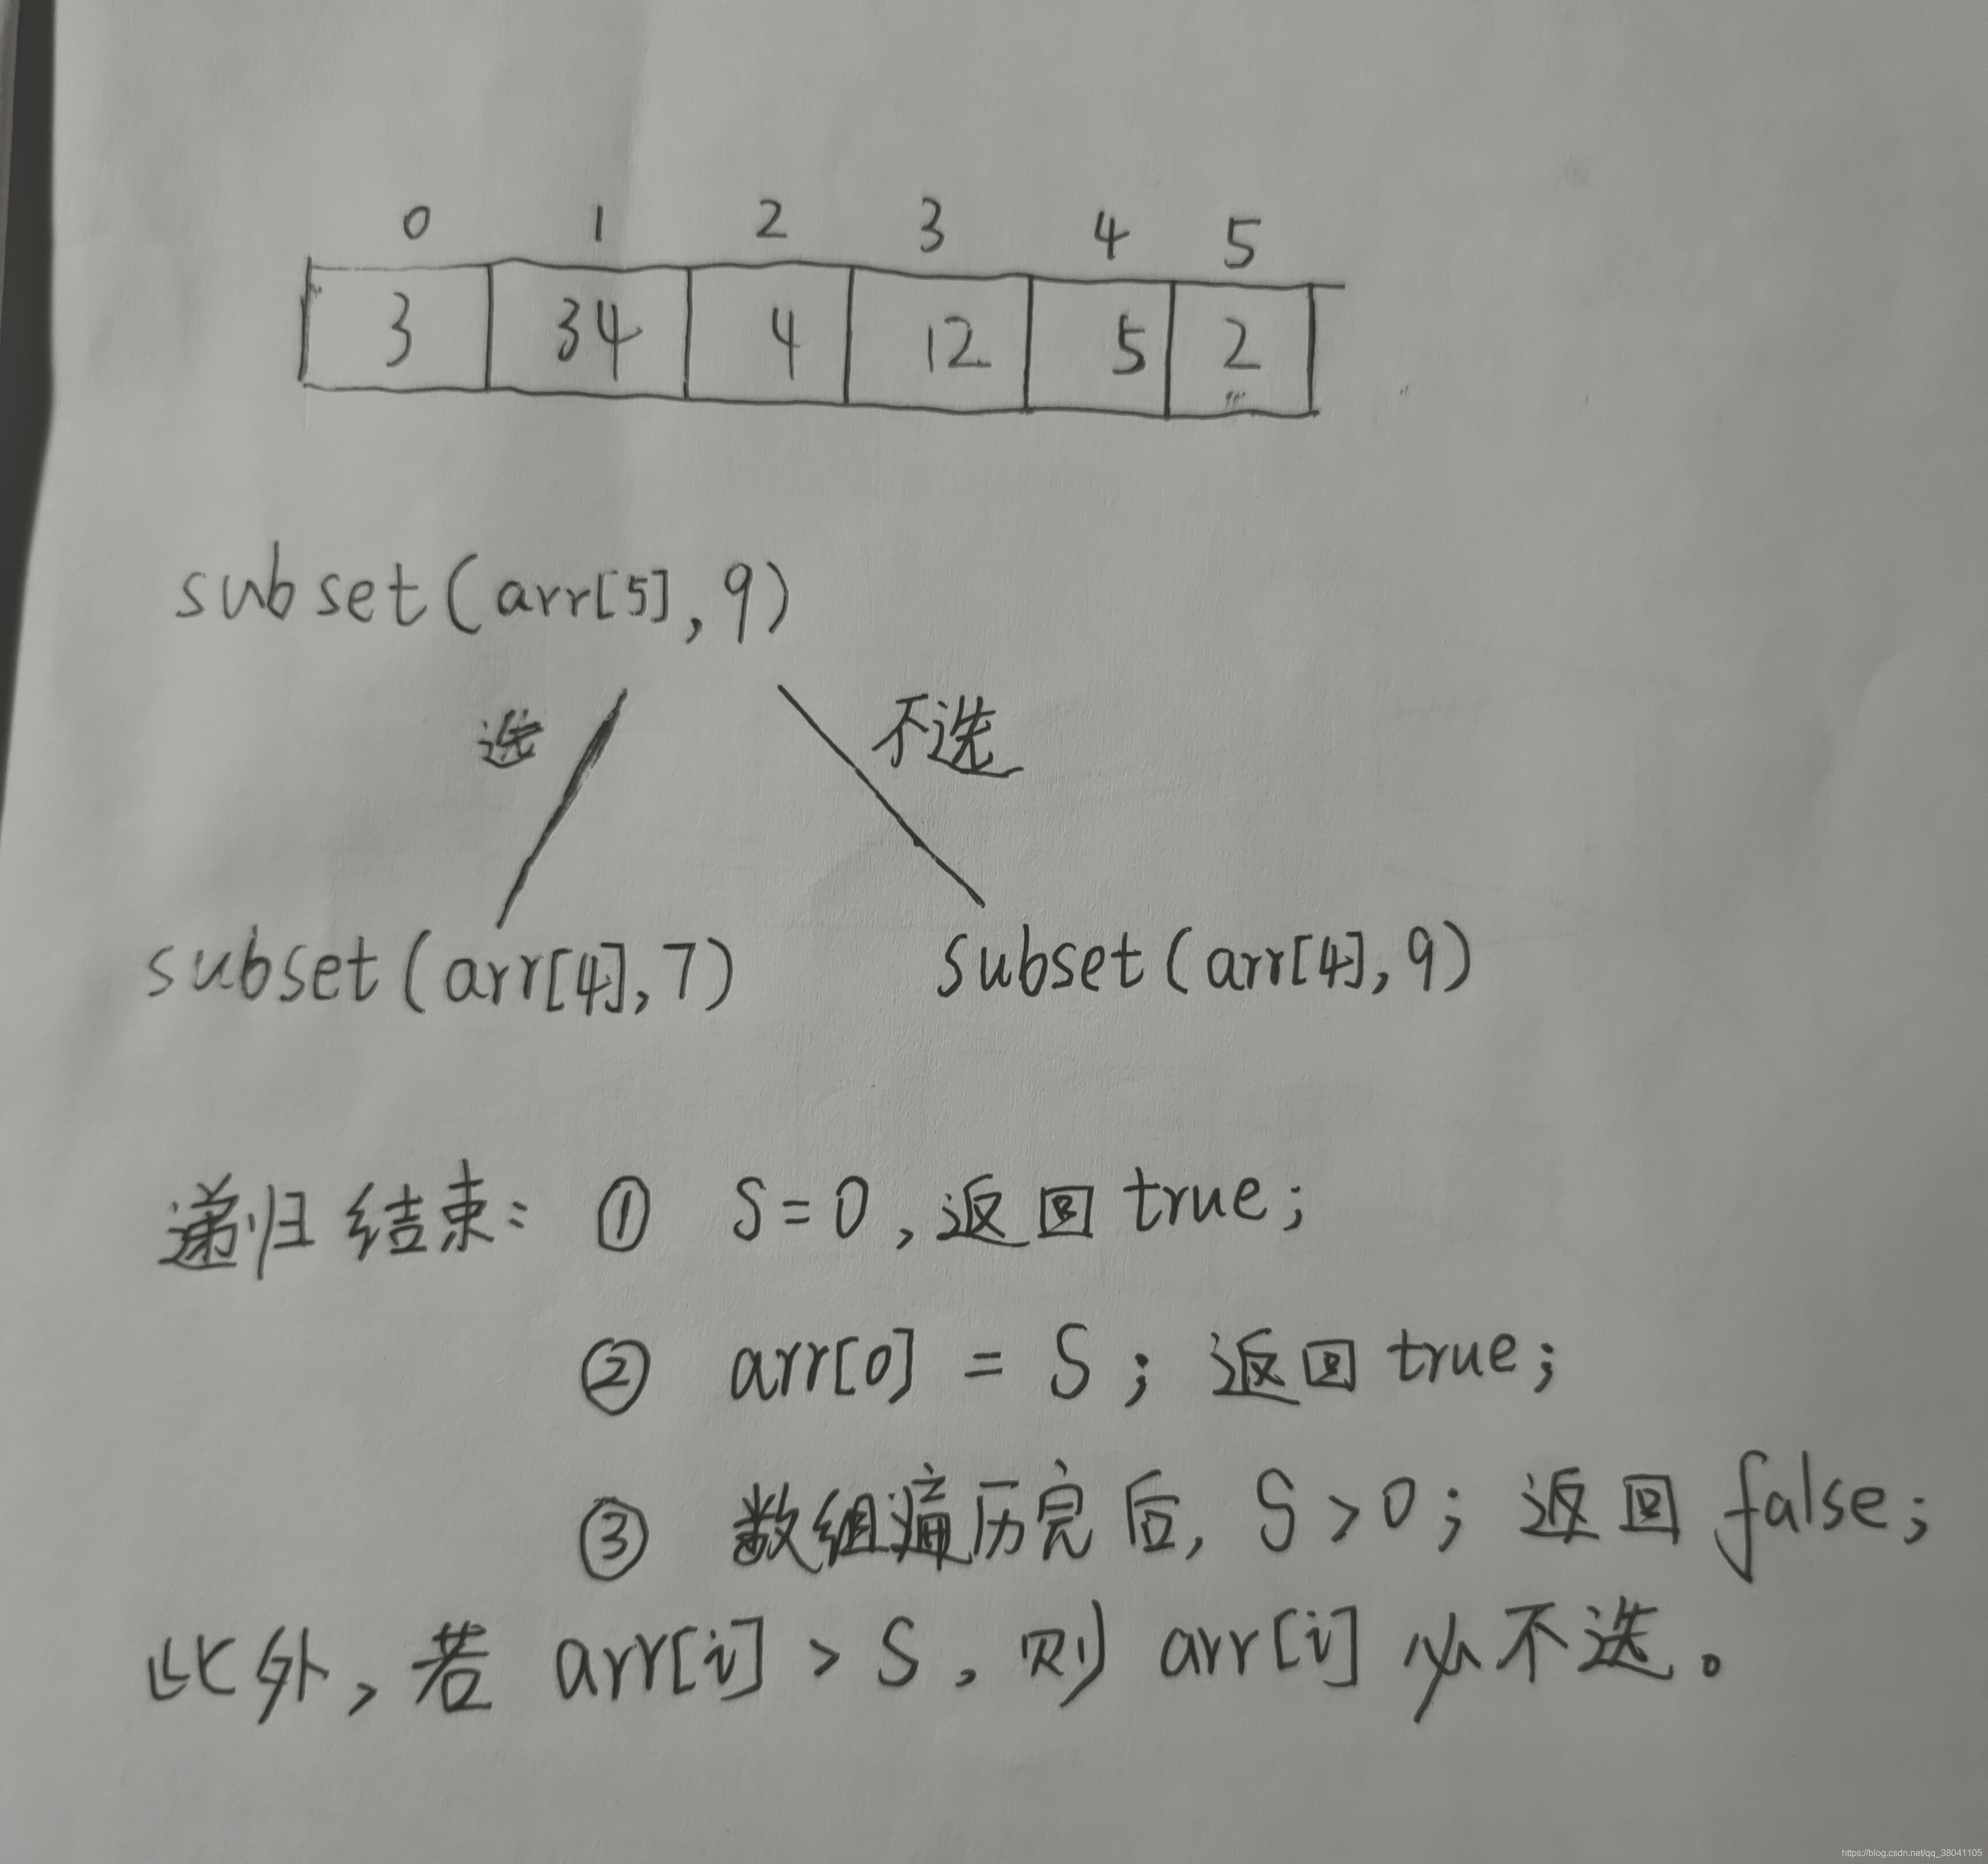 0 1 2 3 4 5
3 34 4 12 5 2
subset(arr[5],9)
选 不选
subset(arr[4],7) subset(arr[4],9)
递归结束: ① S=0,返回true;
② arr[0] = S; 返回true;
③ 数组遍历完后, S>0; 返回false;
此外,若 arr[i] > S,则 arr[i] 必不选。
https://blog.csdn.net/qq_38041105